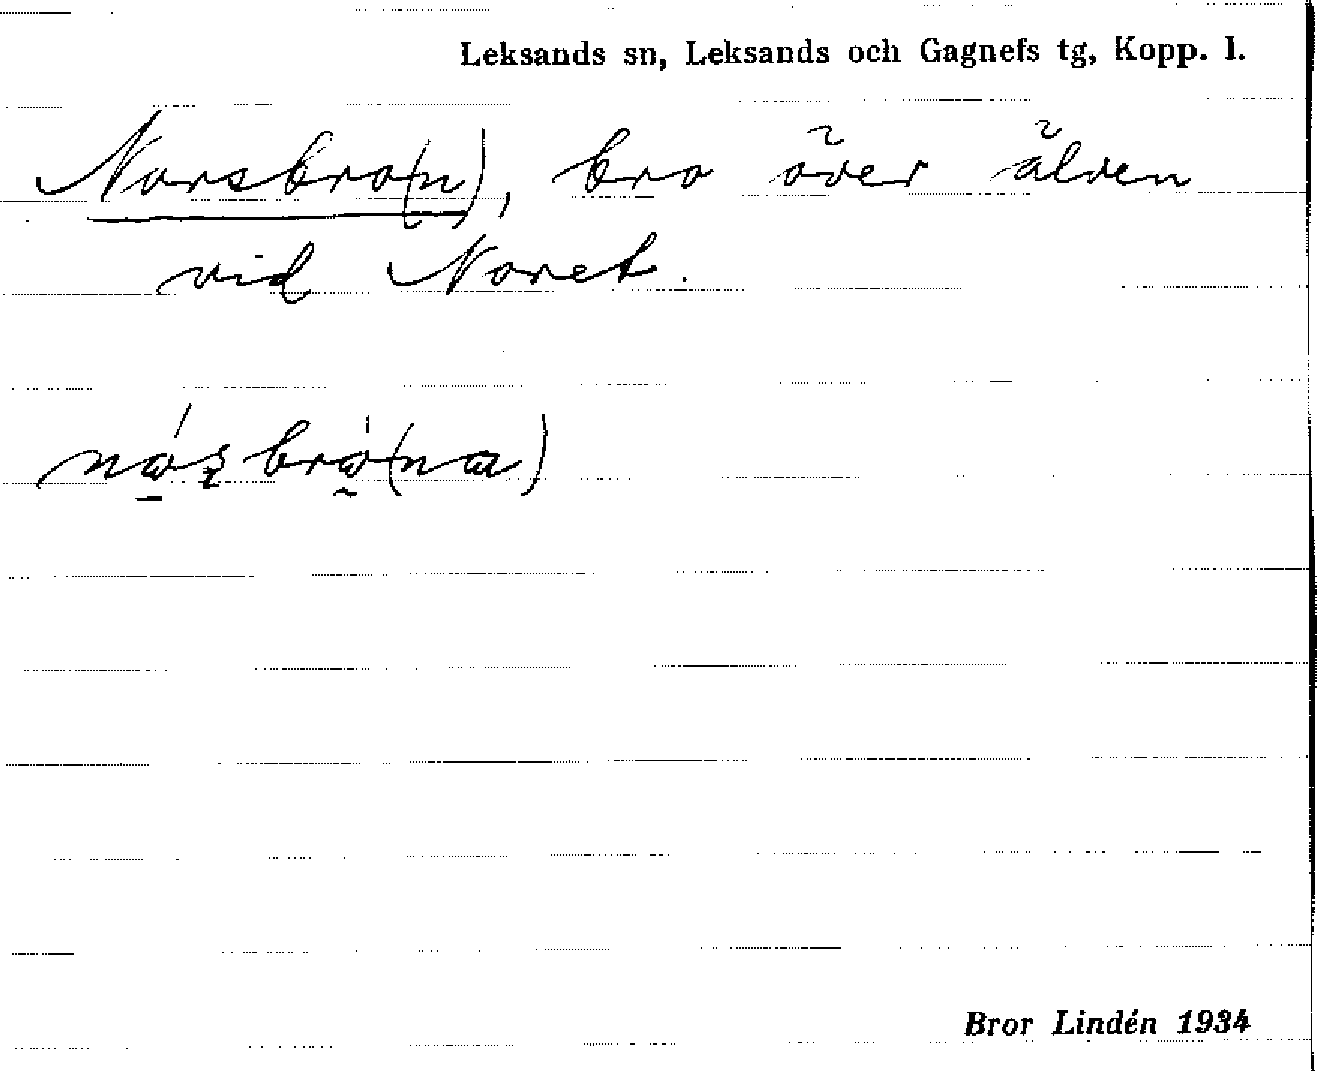 Leksands sn, Leksands och Gagnefs tg, Kopp. l.
Norsbro(n), bro över älven
vid Noret.
Bror Lindén 1934